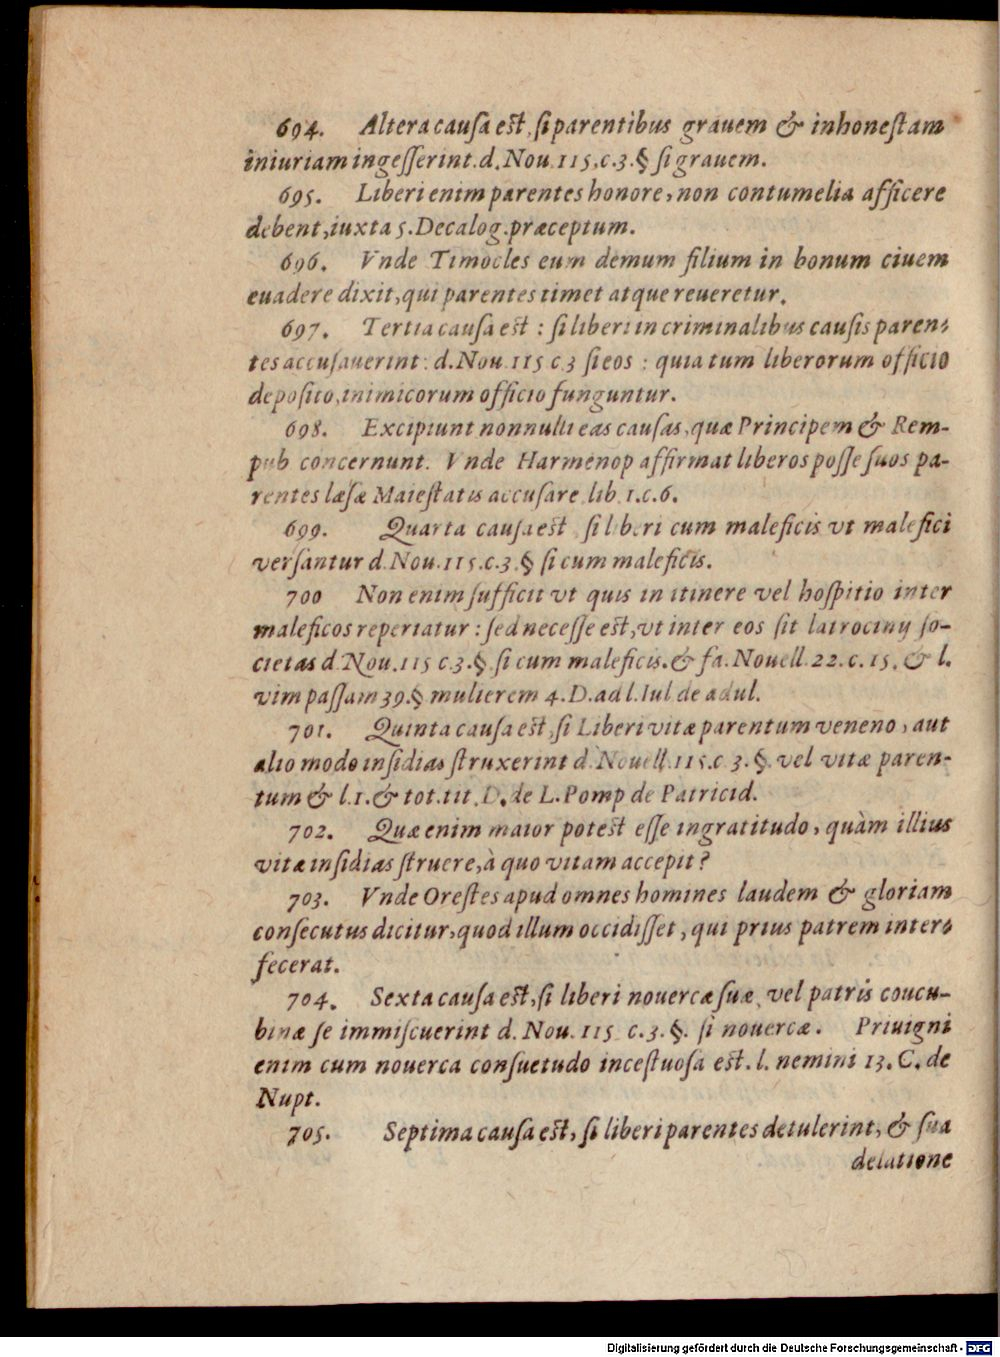 694. Altera causa est, si parentibus grauem & inhonestam
iniuriam ingesserint. d. Nou. 115. c. 3. § si grauem.
695. Liberi enim parentes honore, non contumelia afficere
debent, iuxta 5. Decalog. præceptum.
696. Vnde Timocles eum demum filium in bonum ciuem
euadere dixit, qui parentes timet atque reueretur.
697. Tertia causa est : si liberi in criminalibus causis paren-
tes accusauerint: d. Nou 115 c 3 si eos : quia tum liberorum officio
deposito, inimicorum officio funguntur.
698. Excipiunt nonnulli eas causas, quæ Principem & Rem-
pub concernunt. Vnde Harmenop affirmat liberos posse suos pa-
rentes læsæ Maiestatis accusare lib. 1. c. 6.
699. Quarta causa est, si liberi cum maleficis vt malefici
versantur d. Nou. 115. c. 3. § si cum maleficis.
700 Non enim sufficit vt quis in itinere vel hospitio inter
maleficos reperiatur : sed necesse est, vt inter eos sit latrocinij so-
cietas d. Nou. 115 c. 3. §. si cum maleficis. & fa. Nouell. 22. c. 15. & l.
vim passam 39. § mulierem 4. D. ad l. Iul de adul.
701. Quinta causa est, si Liberi vitæ parentum veneno, aut
alio modo insidias struxerint d. Nouell. 115. c. 3. §. vel vitæ paren-
tum & l. 1. & tot. tit. D. de L. Pomp de Patricid.
702. Quæ enim maior potest esse ingratitudo, quàm illius
vitæ insidias struere, à quo vitam accepit?
703. Vnde Orestes apud omnes homines laudem & gloriam
consecutus dicitur, quod illum occidisset, qui prius patrem inter-
fecerat.
704. Sexta causa est, si liberi nouercæ suæ, vel patris coucu-
binæ se immiscuerint d. Nou. 115 c. 3. §. si nouercæ. Priuigni
enim cum nouerca consuetudo incestuosa est. l. nemini 13. C. de
Nupt.
705. Septima causa est, si liberi parentes detulerint, & sua
delatione
Digitalisierung gefördert durch die Deutsche Forschungsgemeinschaft - DFG